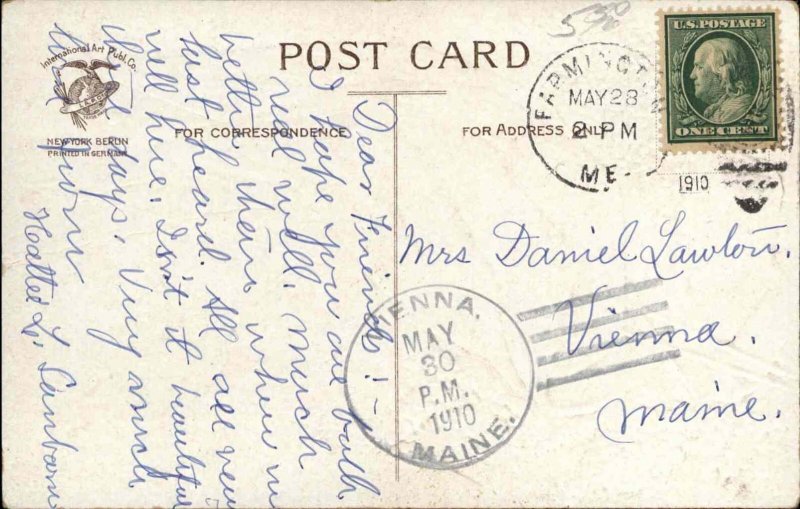 POST CARD
International Art Publ. Co.
NEW YORK BERLIN
PRINTED IN GERMANY
FOR CORRESPONDENCE
FOR ADDRESS ONLY
FARMINGTON
MAY 28
2 PM
ME.
1910
U.S. POSTAGE
ONE CENT
Mrs Daniel Lawton.
Vienna.
Maine.
VIENNA.
MAY
30
P.M.
1910
MAINE.
Dear Friends! -
I hope you are both
real well. Much
better than when we
last heard. All are very
well here. Isn't it beautiful
days. Very much
love from
Hattie L. Sanborn